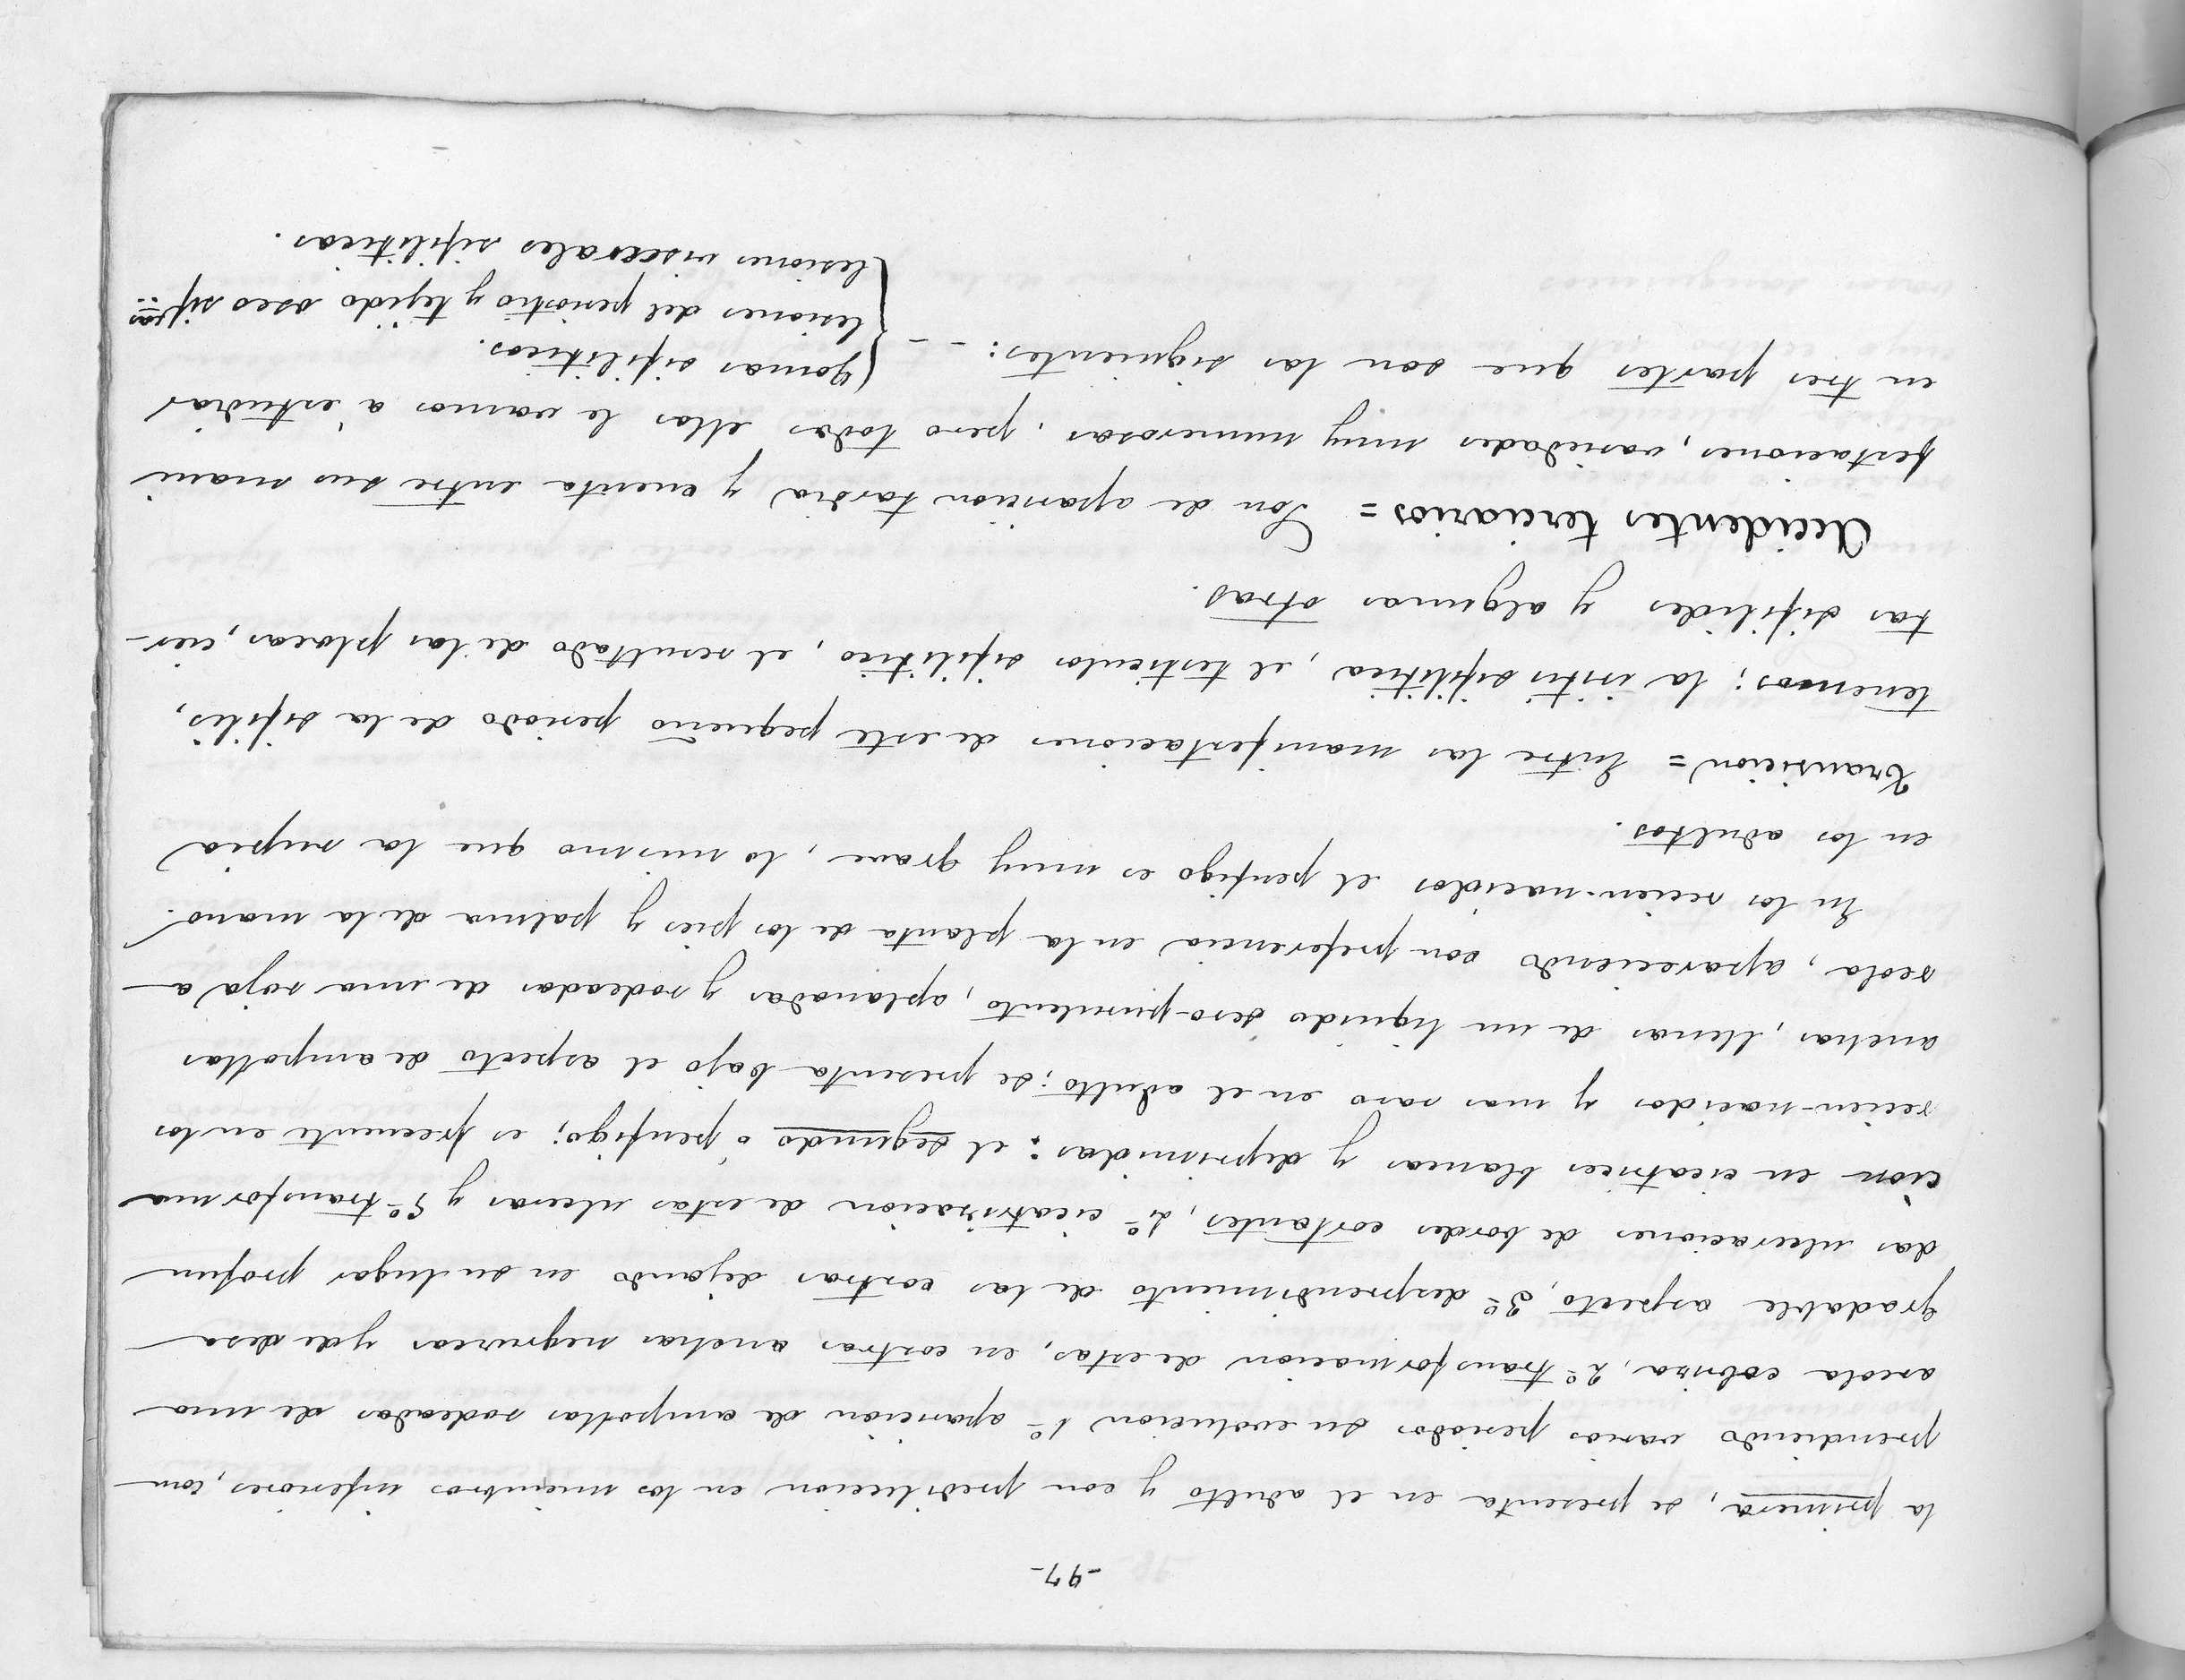 -97-
la primera, se presenta en el adulto y con predileccion en los miembros inferiores, com
prendiendo varios periodos su evolucion 1º aparición de ampollas rodeadas de una
areola cobriza, 2º transformacion de estas, en costras anchas negruzcas y de desa
gradable aspecto, 3º desprendimiento de las costras dejando en su lugar profun
das ulceraciones de bordes cortantes, 4º cicatrizacion de estas ulceras y 5º transforma
ción en cicatrices blancas y deprimidas: el segundo o penfigo; es frecuente en los
recien-nacidos y mas raro en el adulto; se presenta bajo el aspecto de ampollas
anchas, llenas de un liquido sero-purulento, aplanadas y rodeadas de una roja a
reola, apareciendo con preferencia en la planta de los pies y palma de la mano.
En los recien-nacidos el penfigo es muy grave, lo mismo que la rupia
en los adultos.
Transicion = Entre las manifestaciones de este pequeño periodo de la sifilis,
tenemos; la iritis sifilitica, el testiculos sifilitico, el resultado de las placas, cier-
tas sifilides y algunas otras.
Accidentes terciarios = Son de aparicion tardia y cuenta entre sus mani
festaciones, variedades muy numerosas, pero todas ellas le vamos á estudiar
en tres partes que son las siguientes: - -
Gomas sifiliticas.
lesiones del periostio y tejido oseo sifcas
lesiones viscerales sifiliticas.